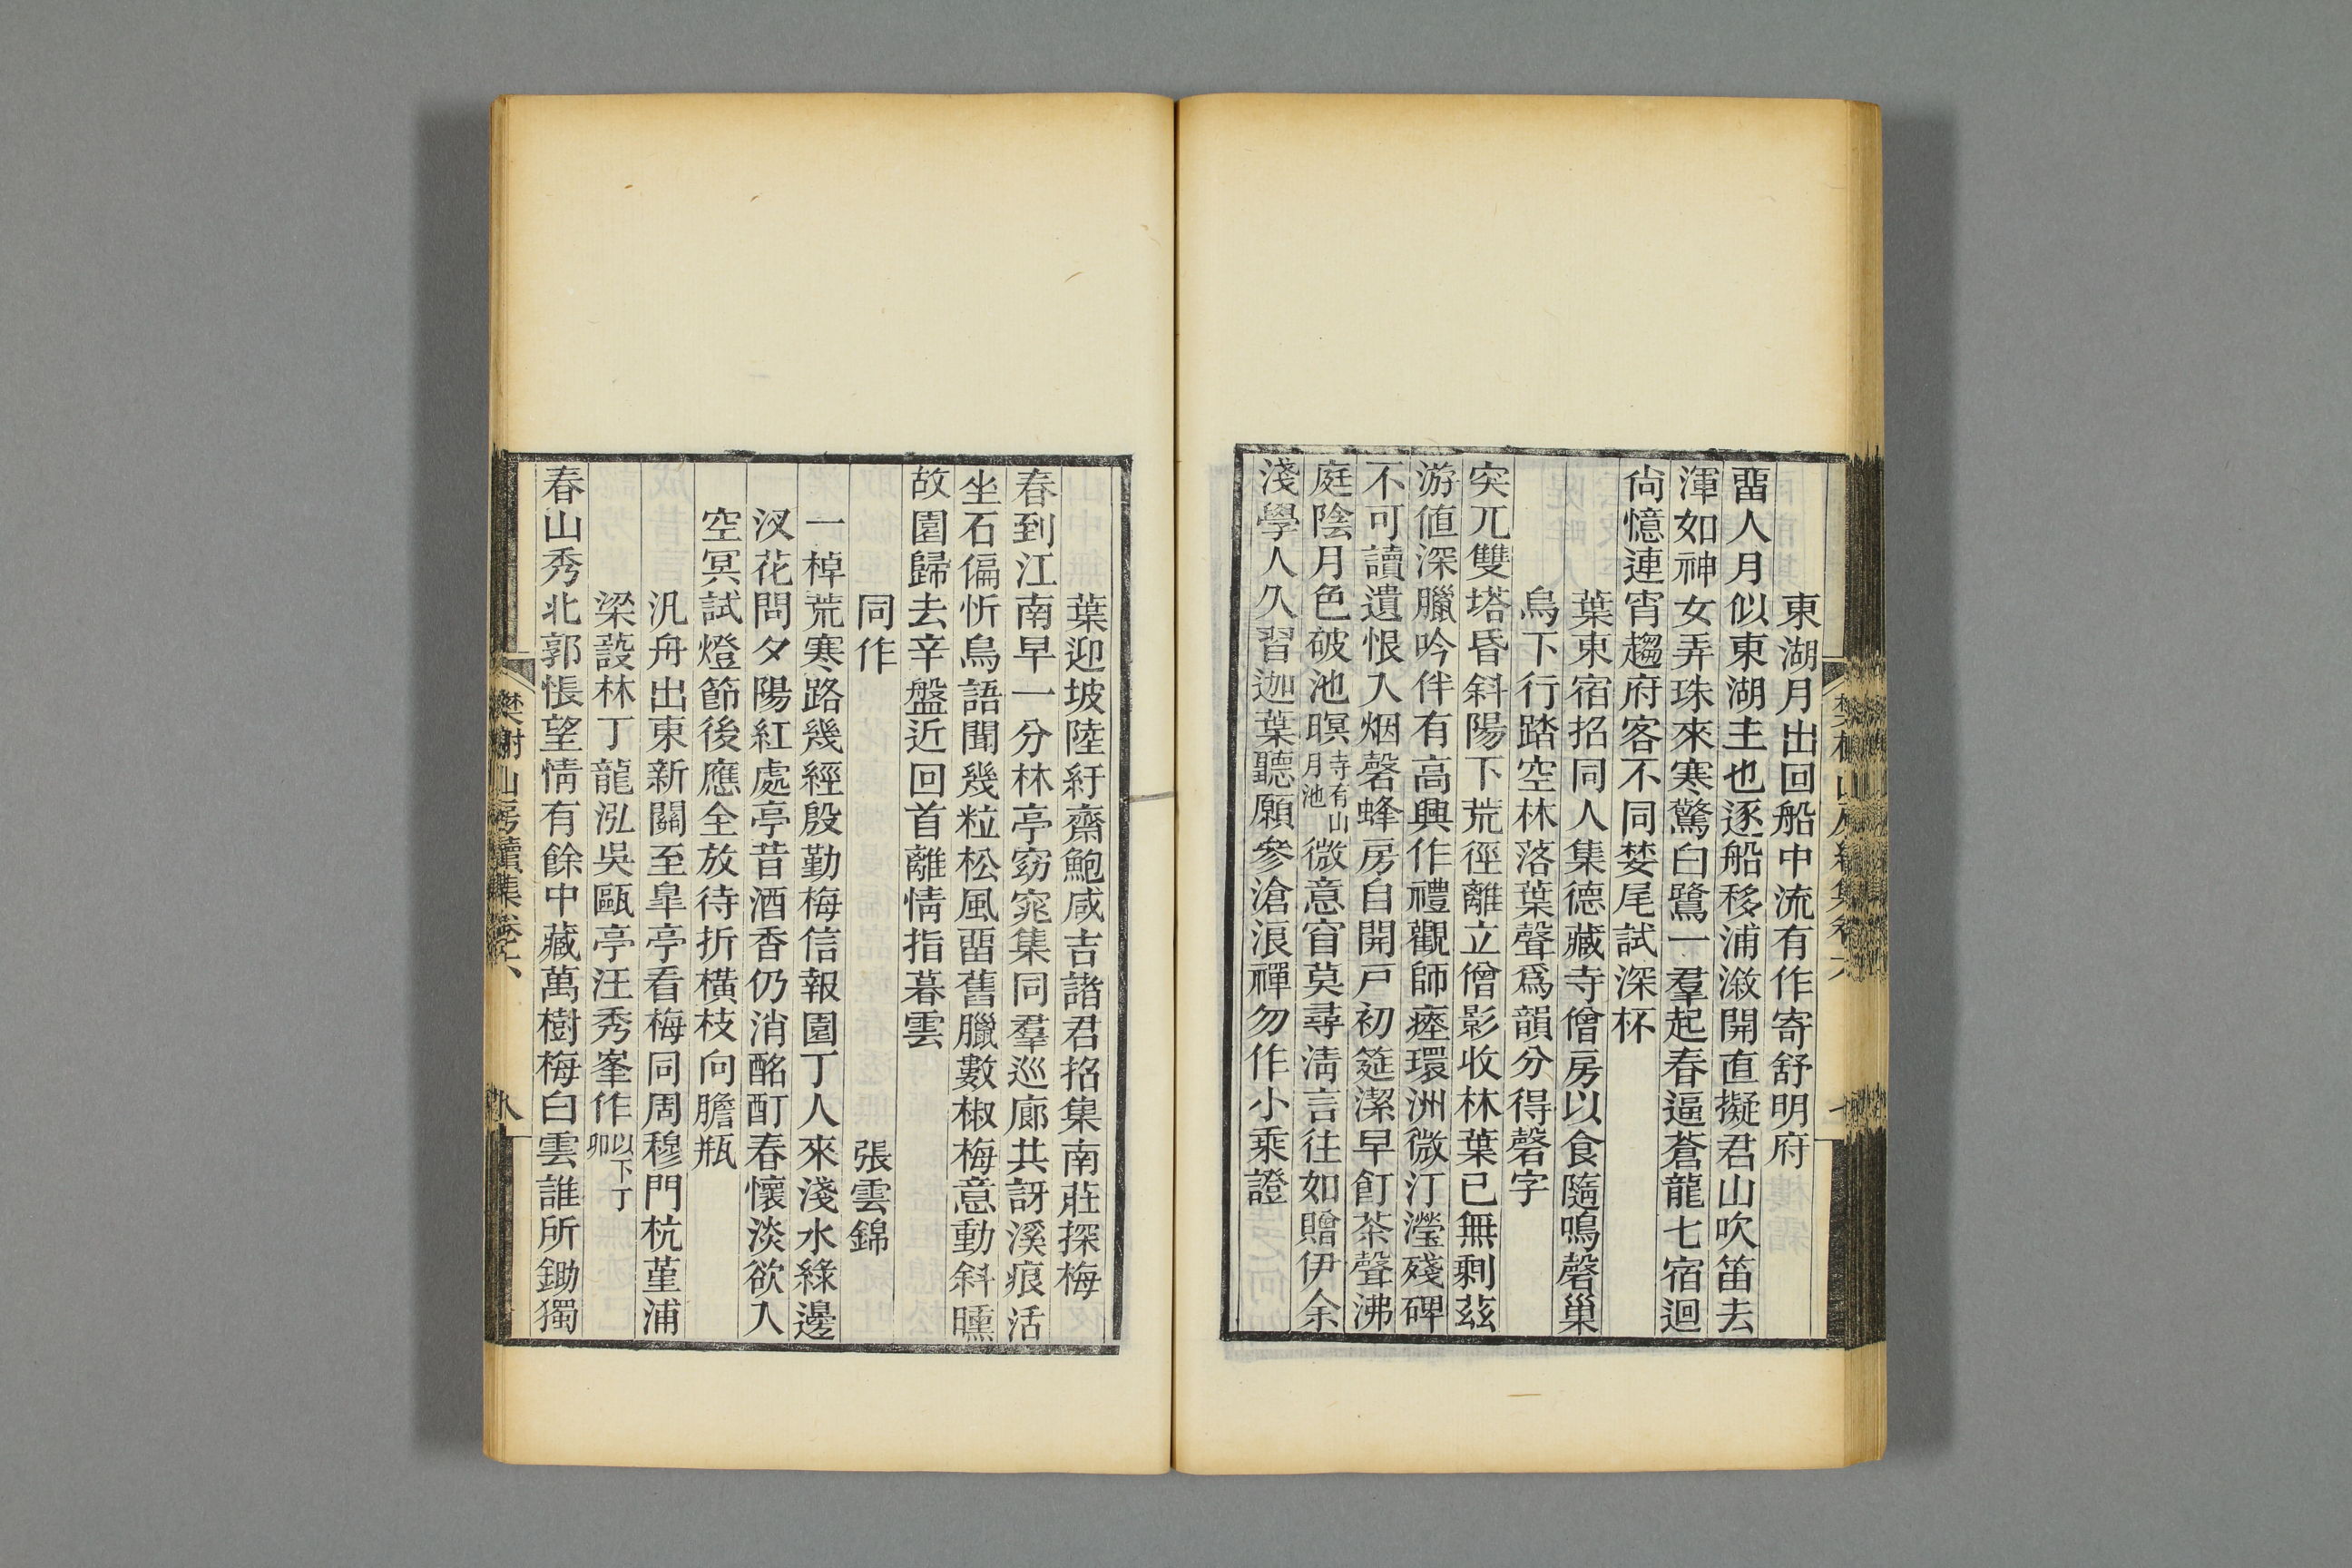 東湖月出回船中流有作寄舒明府
畱人月似東湖主也逐船移浦溆開直擬君山吹笛去
渾如神女弄珠來寒驚白鷺一羣起春逼蒼龍七宿迴
尙憶連宵趨府客不同婪尾試深杯
葉東宿招同人集德藏寺僧房以食隨鳴磬巢
烏下行踏空林落葉聲爲韻分得磬字
突兀雙塔昏斜陽下荒徑離立僧影收林葉已無剩茲
游値深臘吟伴有高興作禮觀師瘞環洲微汀瀅殘碑
不可讀遺恨入烟磬蜂房自開戸初筵潔早飣茶聲沸
庭陰月色破池暝寺有山月池微意窅莫尋淸言往如贈伊余
淺學人久習迦葉聽願參滄浪禪勿作小乘證
葉迎坡陸紆齋鮑咸吉諸君招集南莊探梅
春到江南早一分林亭窈窕集同羣巡廊共訝溪痕活
坐石偏忻鳥語聞幾粒松風畱舊臘數椒梅意動斜曛
故園歸去辛盤近回首離情指暮雲
同作 張雲錦
一棹荒寒路幾經殷勤梅信報園丁人來淺水綠邊
汊花問夕陽紅處亭昔酒香仍消酩酊春懷淡欲入
空冥試燈節後應全放待折橫枝向膽瓶
汎舟出東新關至皐亭看梅同周穆門杭堇浦
梁蔎林丁龍泓吳甌亭汪秀峯作以下丁卯
春山秀北郭悵望情有餘中藏萬樹梅白雲誰所鋤獨
樊榭山房續集卷六 八